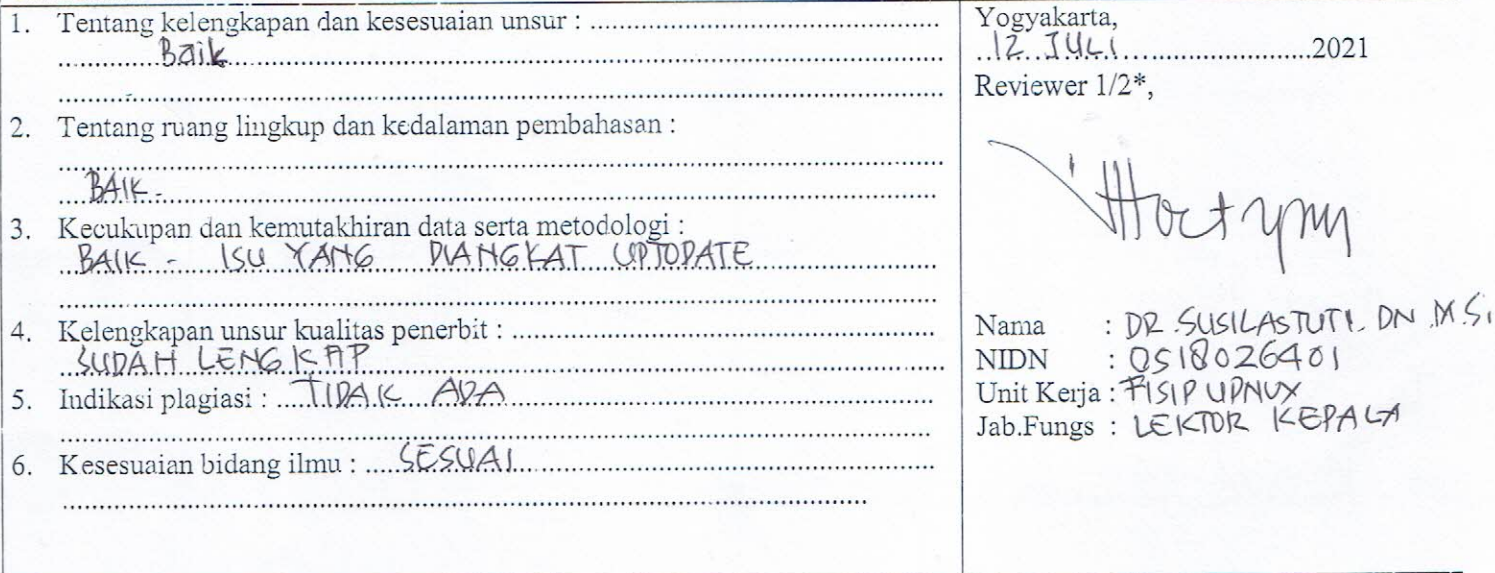 1. Tentang kelengkapan dan kesesuaian unsur : ..........
Baik
2. Tentang ruang lingkup dan kedalaman pembahasan :
BAIK -
3. Kecukupan dan kemutakhiran data serta metodologi :
BAIK - ISU YANG DIANGKAT UPTODATE
4. Kelengkapan unsur kualitas penerbit : ..........
SUDAH LENGKAP
5. Indikasi plagiasi : TIDAK ADA
6. Kesesuaian bidang ilmu : SESUAI
Yogyakarta,
12 JULI 2021
Reviewer 1/2*,
Nama : DR. SUSILASTUTI DN M.Si
NIDN : 0518026401
Unit Kerja : FISIP UPNVY
Jab.Fungs : LEKTOR KEPALA